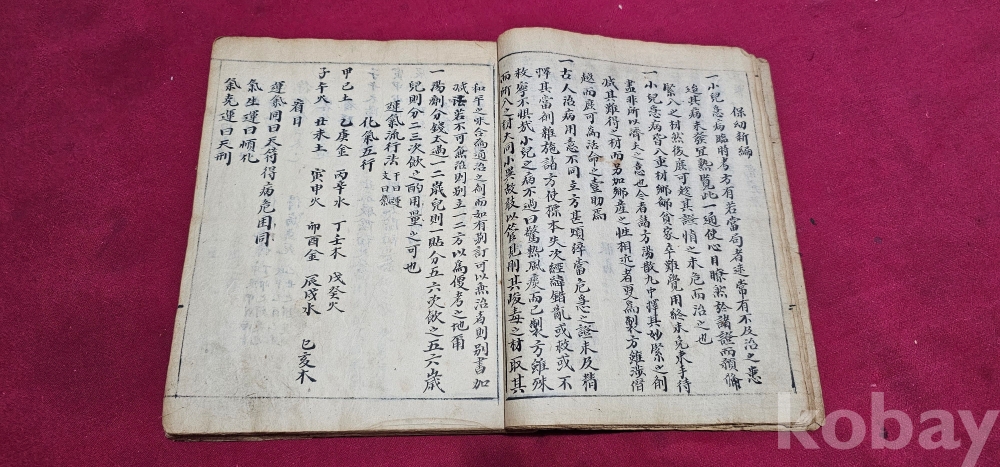 保幼新編
一小兒急病臨時考方有若當局者迷常有不及治之患
迨其病未發宜熟覽此一通使心目瞭然於諸證而預備
緊入之材然後庶可趁其證情之未危而治之也
一小兒急病皆入重材鄉鄙貧家卒難覺用終未免束手待
盡非所以濟夫之意也今者諸方湯散丸中擇其妙緊之劑
減其難得之材而另加鄉產之性相近者更爲製方雖涉僭
越而庶可爲活命之壹助焉
一古人治病用意不同立方甚煩猝當危急之證未及精
擇其當劑雜施諸方使標本失次經緯錯亂或救或不
救寧不惧哉小兒之病不過曰驚熱風痰而已製方雖殊
而所入之材大同小異故敢以管見削其峻毒之材取其
和平之味合爲通治之劑而如有剔訂可以無治者則別書加
減法若不可無治則別立一二方以爲便考之地爾
一湯劑分錢太過一二歲兒則一貼分五六次飮之五六歲
兒則分二三次飮之酌用量之可也
運氣流行法 干曰運 支曰氣
化氣五行
甲己土 乙庚金 丙辛水 丁壬木 戊癸火
子午火 丑未土 寅申火 卯酉金 辰戌水 巳亥木
看日
運氣同曰天符得病危困同
氣生運曰順化
氣克運曰天刑
kobay